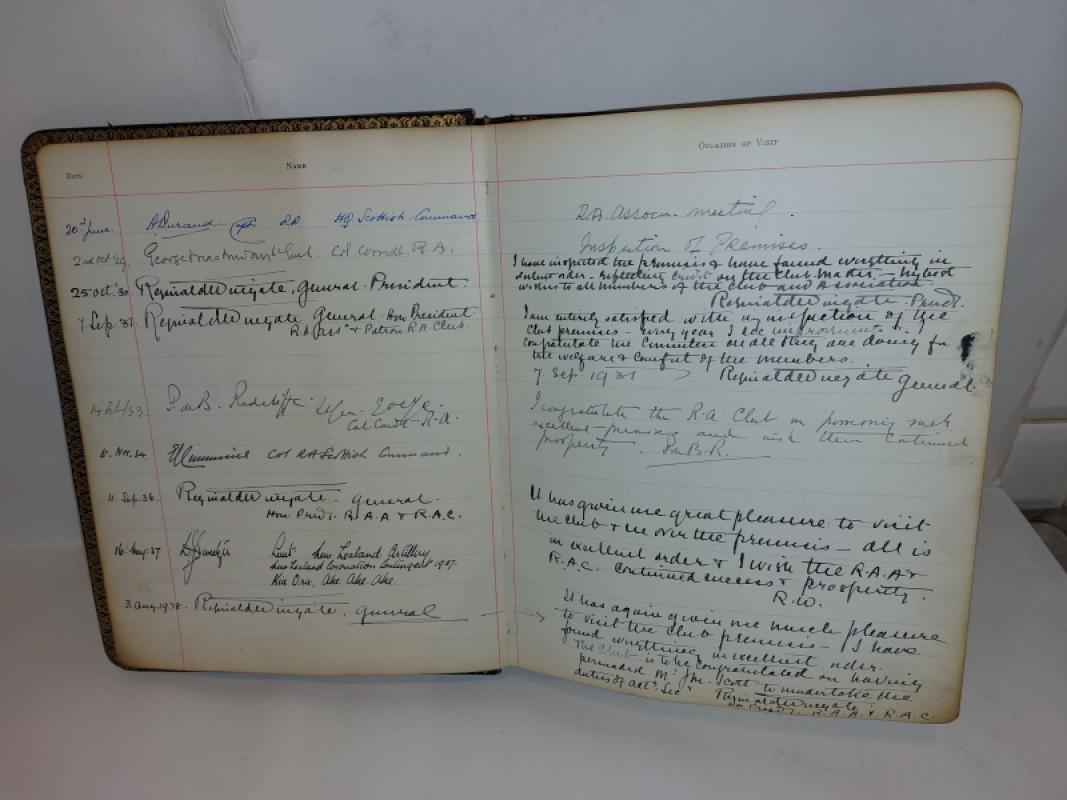 DATE NAME
20th June. A Durand Capt RA HQ Scottish Command
2nd Oct 29. George Col. Comdt. R.A.
25 Oct. '30 Reginald Wingate, General. President
7 Sep. 31. Reginald Wingate General. Hon President
RA Assn & Patron R.A. Club.
14 Feb/33 P. de B. Radcliffe
Col Comdt R.A.
8. Nov. 34. Col RA Scottish Command.
11 Sep. 36. Reginald Wingate. General.
Hon. Presdt. R.A.A & R.A.C.
16. May. 37 Lieut. New Zealand Artillery
New Zealand Coronation Contingent 1937.
Kia Ora, Ake Ake. Ake.
3. Aug 1938. Reginald Wingate. General
OCCASION OF VISIT
R.A. Assocn. meeting.
Inspection of Premises.
I have inspected the premises & have found everything in
excellent order - reflecting credit on the Club Master - highest
wishes to all members of the Club and Association
Reginald Wingate. Presdt.
I am entirely satisfied with my inspection of the
Club premises - every year I see improvements & I
congratulate the Committee on all they are doing for
the welfare & comfort of the members.
7 Sep. 1931. Reginald Wingate General.
I congratulate the R.A. Club on possessing such
excellent premises and wish them continued
prosperity. P. de B. R.
It has given me great pleasure to visit
the Club & see over the premises - all is
in excellent order & I wish the R.A.A &
R.A.C. continued success & prosperity.
R.W.
It has again given me much pleasure
to visit the Club premises - I have
found everything in excellent order.
The Club is to be congratulated on having
persuaded Mr. Jno. Scott to undertake the
duties of Sec.
Reginald Wingate.
Hon Presdt. R.A.A. & R.A.C.